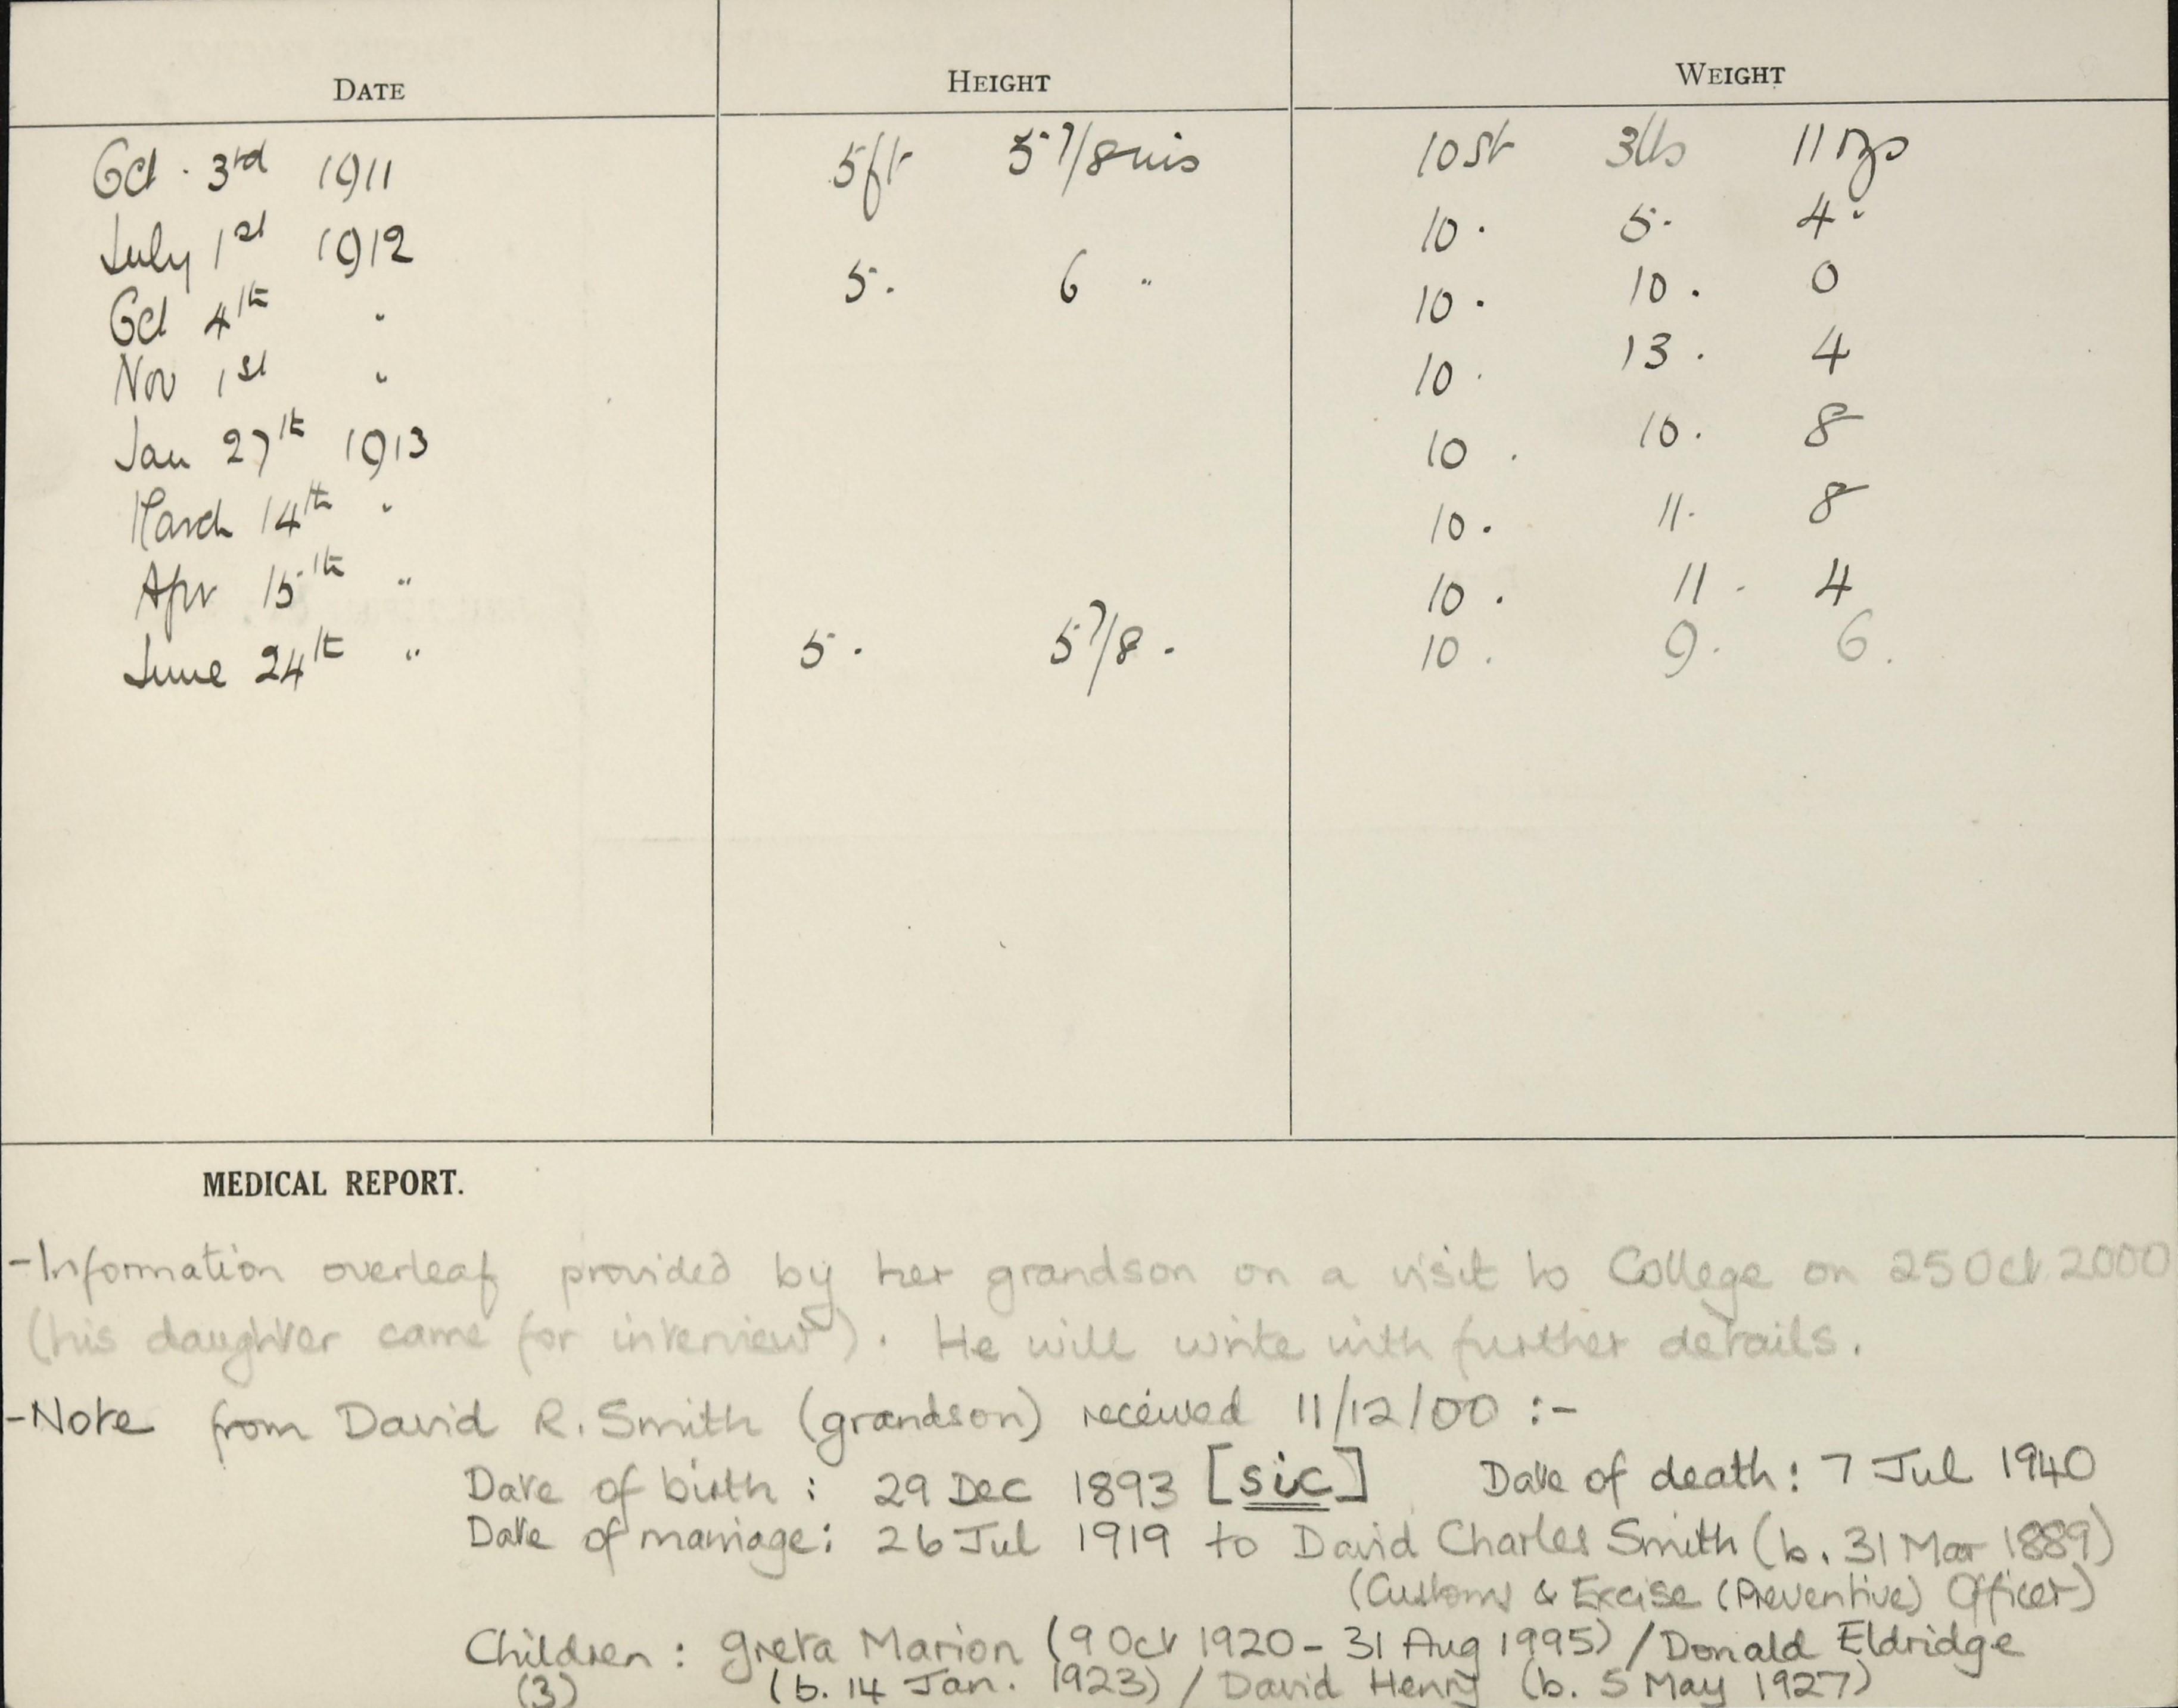 DATE HEIGHT WEIGHT
Oct. 3rd 1911 5ft 5 7/8 ins 10 st 3 lbs 11 ozs
July 1st 1912 10. 5. 4.
Oct 4th " 5. 6 " 10. 10. 0
Nov 1st " 10. 13. 4
Jan 27th 1913 10. 10. 8
March 14th " 10. 11. 8
Apr 15th " 10. 11. 4
June 24th " 5. 5 7/8. 10. 9. 6.
MEDICAL REPORT.
- Information overleaf provided by her grandson on a visit to College on 25 Oct 2000
(his daughter came for interview). He will write with further details.
- Note from David R. Smith (grandson) received 11/12/00 :-
Date of birth : 29 Dec 1893 [sic] Date of death : 7 Jul 1940
Date of marriage : 26 Jul 1919 to David Charles Smith (b. 31 Mar 1889)
(Customs & Excise (Preventive) Officer)
Children : Greta Marion (9 Oct 1920 - 31 Aug 1995) / Donald Eldridge
(3) (b. 14 Jan. 1923) / David Henry (b. 5 May 1927)